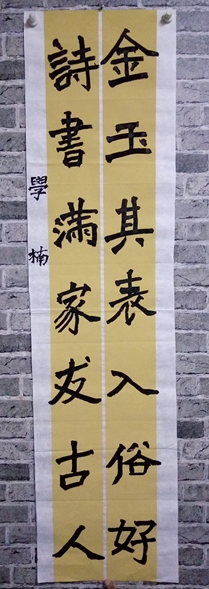 金玉其表入俗好
詩書滿家友古人
學楠